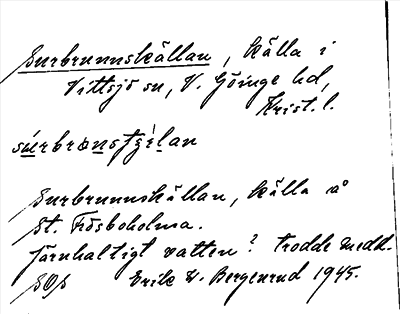 Surbrunnskällan, källa i
Vittsjö sn, V. Göinge hd,
Krist. l.
Surbrunnskällan, källa å
St. Fösboholma.
Järnhaltigt vatten? trodde medd.
SOS Erik W. Bergenrud 1945.